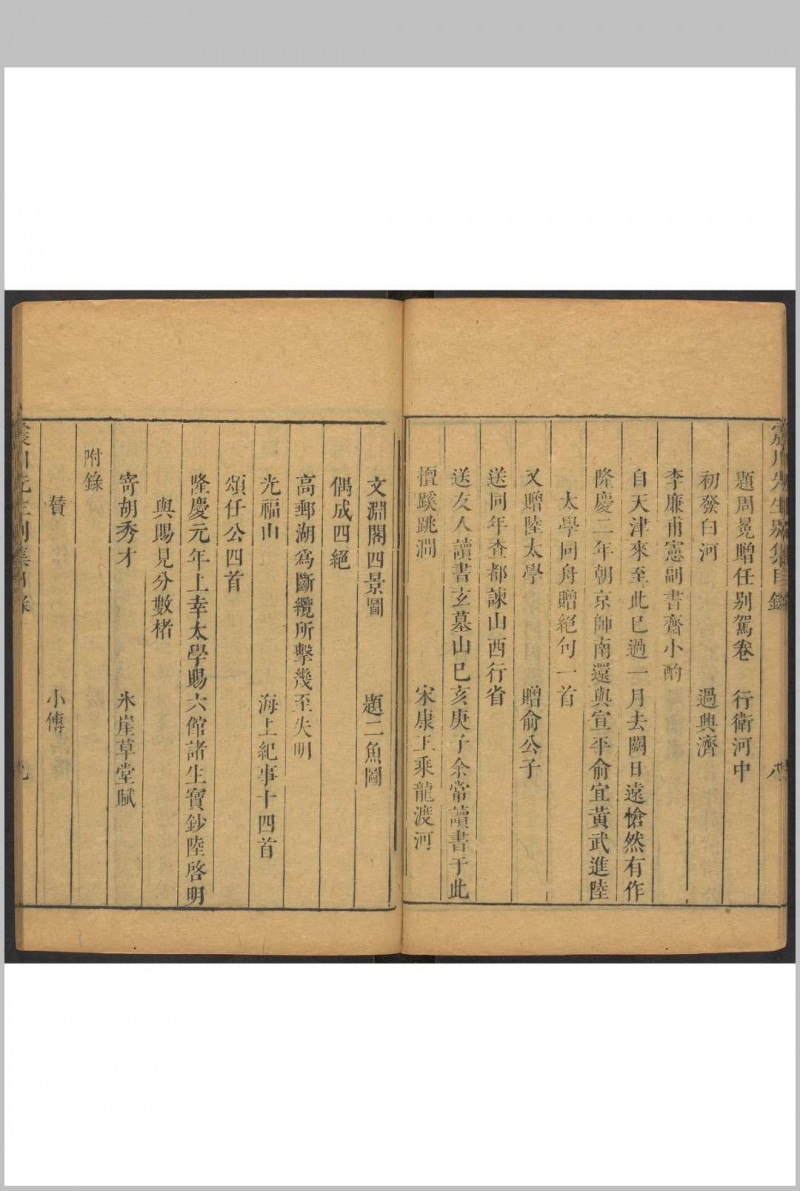 震川先生別集目錄 八
題周冕贈任别駕卷 行衛河中
初發白河 過興濟
李廉甫憲副書齋小酌
自天津來至此已過一月去闕日遠愴然有作
隆慶二年朝京師南還與宣平俞宜黄武進陸
太學同舟贈絕句一首
又贈陸太學 贈俞公子
送同年查都諫山西行省
送友人讀書玄墓山巳亥庚子余常讀書于此
檀谿跳澗 宋康王乘龍渡河
文淵閣四景圖 題二魚圖
偶成四絕
高郵湖爲斷纜所擊幾至失明
光福山 海上紀事十四首
頌任公四首
隆慶元年上幸太學賜六館諸生寶鈔陸啓明
與賜見分數楮
寄胡秀才 氷崖草堂賦
附錄
贊 小傳
震川先生別集目錄 九